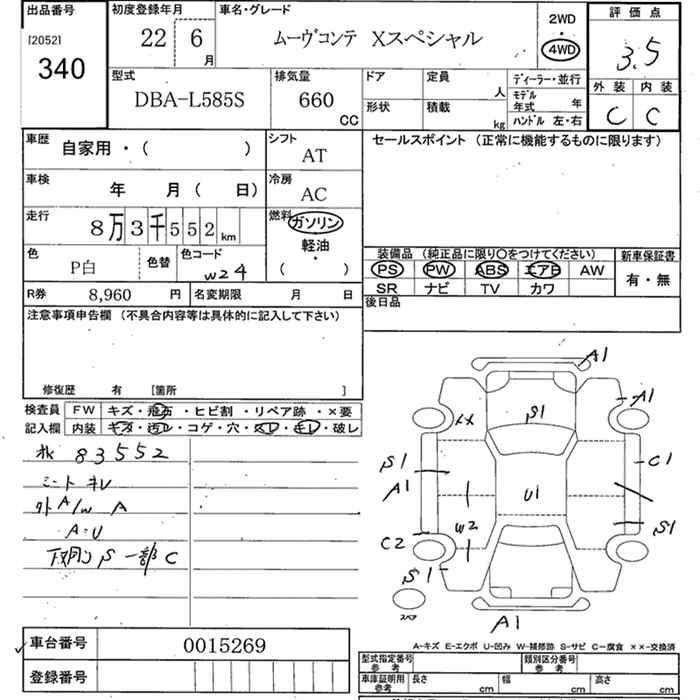 出品番号
[2052]
340
初度登録年月
22 6 月
車名・グレード
ムーヴコンテ Xスペシャル
2WD
・
4WD
評価点
3.5
外装 内装
C C
型式
DBA-L585S
排気量
660
CC
ドア
形状
定員
人
積載
kg
ディーラー・並行
モデル年式 年
ハンドル 左・右
車歴
自家用・( )
シフト
AT
車検
年 月( 日)
冷房
AC
走行
8万3千552km
燃料
ガソリン
・
軽油
・
( )
色
P白
色替
色コード
W24
R券 8,960 円
名変期限 月 日
セールスポイント (正常に機能するものに限ります)
装備品 (純正品に限り○をつけてください)
PS PW ABS エアB AW
SR ナビ TV カワ
新車保証書
有・無
後日品
注意事項申告欄 (不具合内容等は具体的に記入して下さい)
修復歴 有 [箇所 ]
検査員記入欄
FW キズ・飛石・ヒビ割・リペア跡・×要
内装 キズ・汚レ・コゲ・穴・スレ・キレ・破レ
83552
シートキレ
外A/W A
A・U
下回りS一部C
A1
A1
S1
××
S1
A1
C1
U1
W2
S1
C2
S1
スペア
A1
A-キズ E-エクボ U-凹み W-補修跡 S-サビ C-腐食 ××-交換済
車台番号 0015269
登録番号
型式指定番号
参考
類別区分番号
参考
車庫証明用
参考
長さ cm
幅 cm
高さ cm